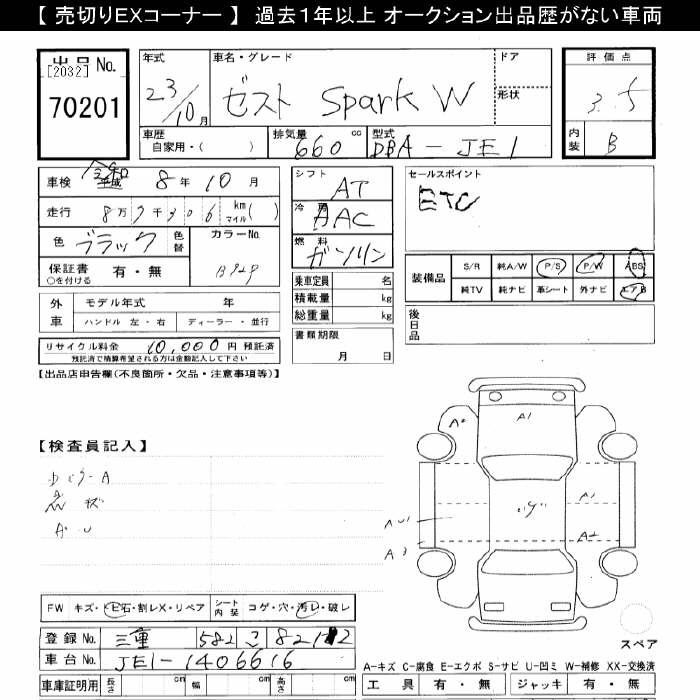 【 売切りEXコーナー 】 過去1年以上 オークション出品歴がない車両
出品 No.
[2032]
70201
年式
23/10月
車名・グレード
ゼスト Spark W
ドア
形状
評価点
3.5
内装
B
車歴
自家用・( )
排気量
660 cc
型式
DBA - JE1
車検 令和 平成 8年 10月
走行 8万7千306 km マイル( )
色 ブラック 色替
カラーNo.
B92P
保証書 有・無
○を付ける
シフト AT
冷房 AAC
燃料 ガソリン
乗車定員 名
積載量 kg
総重量 kg
書類期限
月 日
セールスポイント
ETC
装備品 S/R 純A/W P/S P/W ABS
純TV 純ナビ 革シート 外ナビ エアB
後日品
外車 モデル年式 年
ハンドル 左・右 ディーラー・並行
リサイクル料金 10,000円 預託済
預託済で精算希望される方は金額記入して下さい
【出品店申告欄(不良箇所・欠品・注意事項等)】
【検査員記入】
A2 A1
A1
AU1
A2
A3
FW キズ・ヒ石・割レX・リペア シート内装 コゲ・穴・汚レ・破レ
登録 No. 三重 582 こ 8212
車台 No. JE1-1406616
スペア
A-キズ C-腐食 E-エクボ S-サビ U-凹ミ W-補修 XX-交換済
車庫証明用 長さ cm 幅 cm 高さ cm
工具 有・無 ジャッキ 有・無